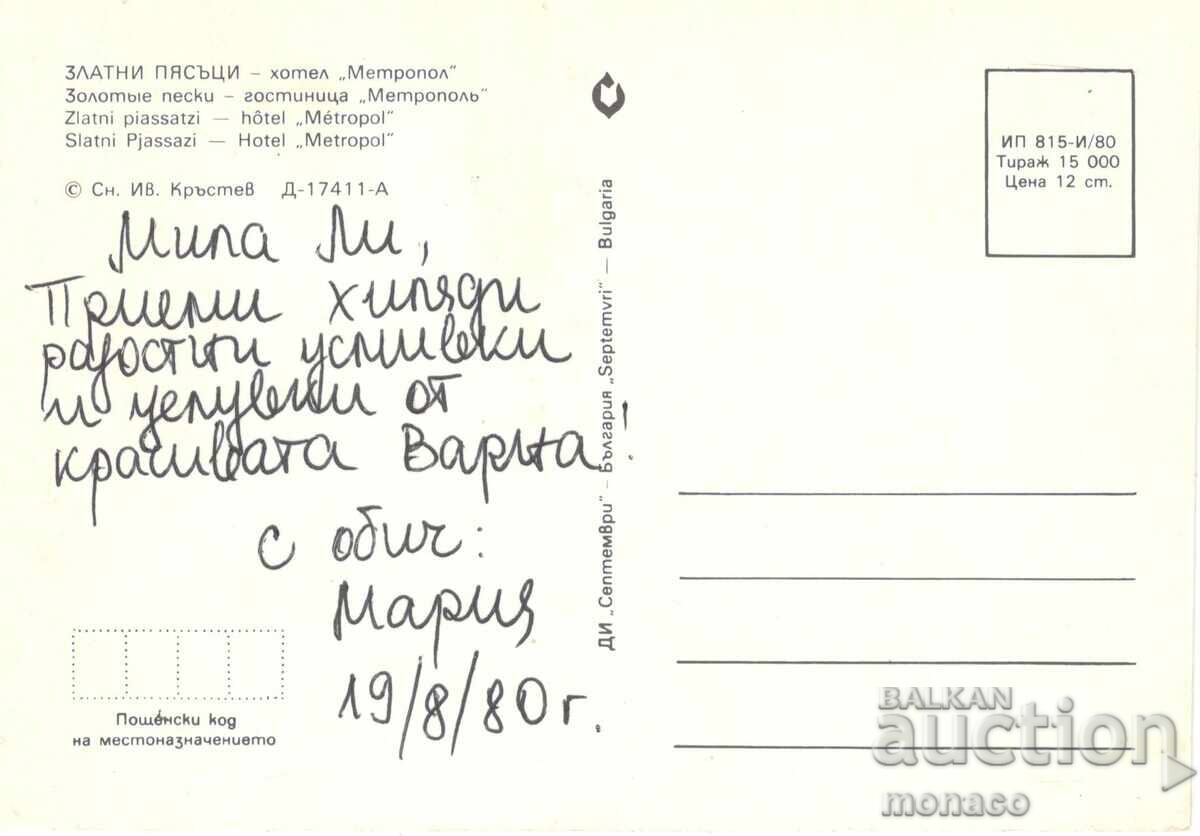 ЗЛАТНИ ПЯСЪЦИ – хотел „Метропол"
Золотые пески – гостиница „Метрополь"
Zlatni piassatzi — hôtel „Métropol"
Slatni Pjassazi — Hotel „Metropol"
© Сн. Ив. Кръстев Д-17411-А
Мила Ли,
Приеми хиляди
радостни усмивки
и целувки от
красивата Варна!
с обич:
Мария
19/8/80 г.
Пощенски код
на местоназначението
ДИ „Септември" – България „Septemvri" — Bulgaria
ИП 815-И/80
Тираж 15 000
Цена 12 ст.
BALKAN
auction
monaco